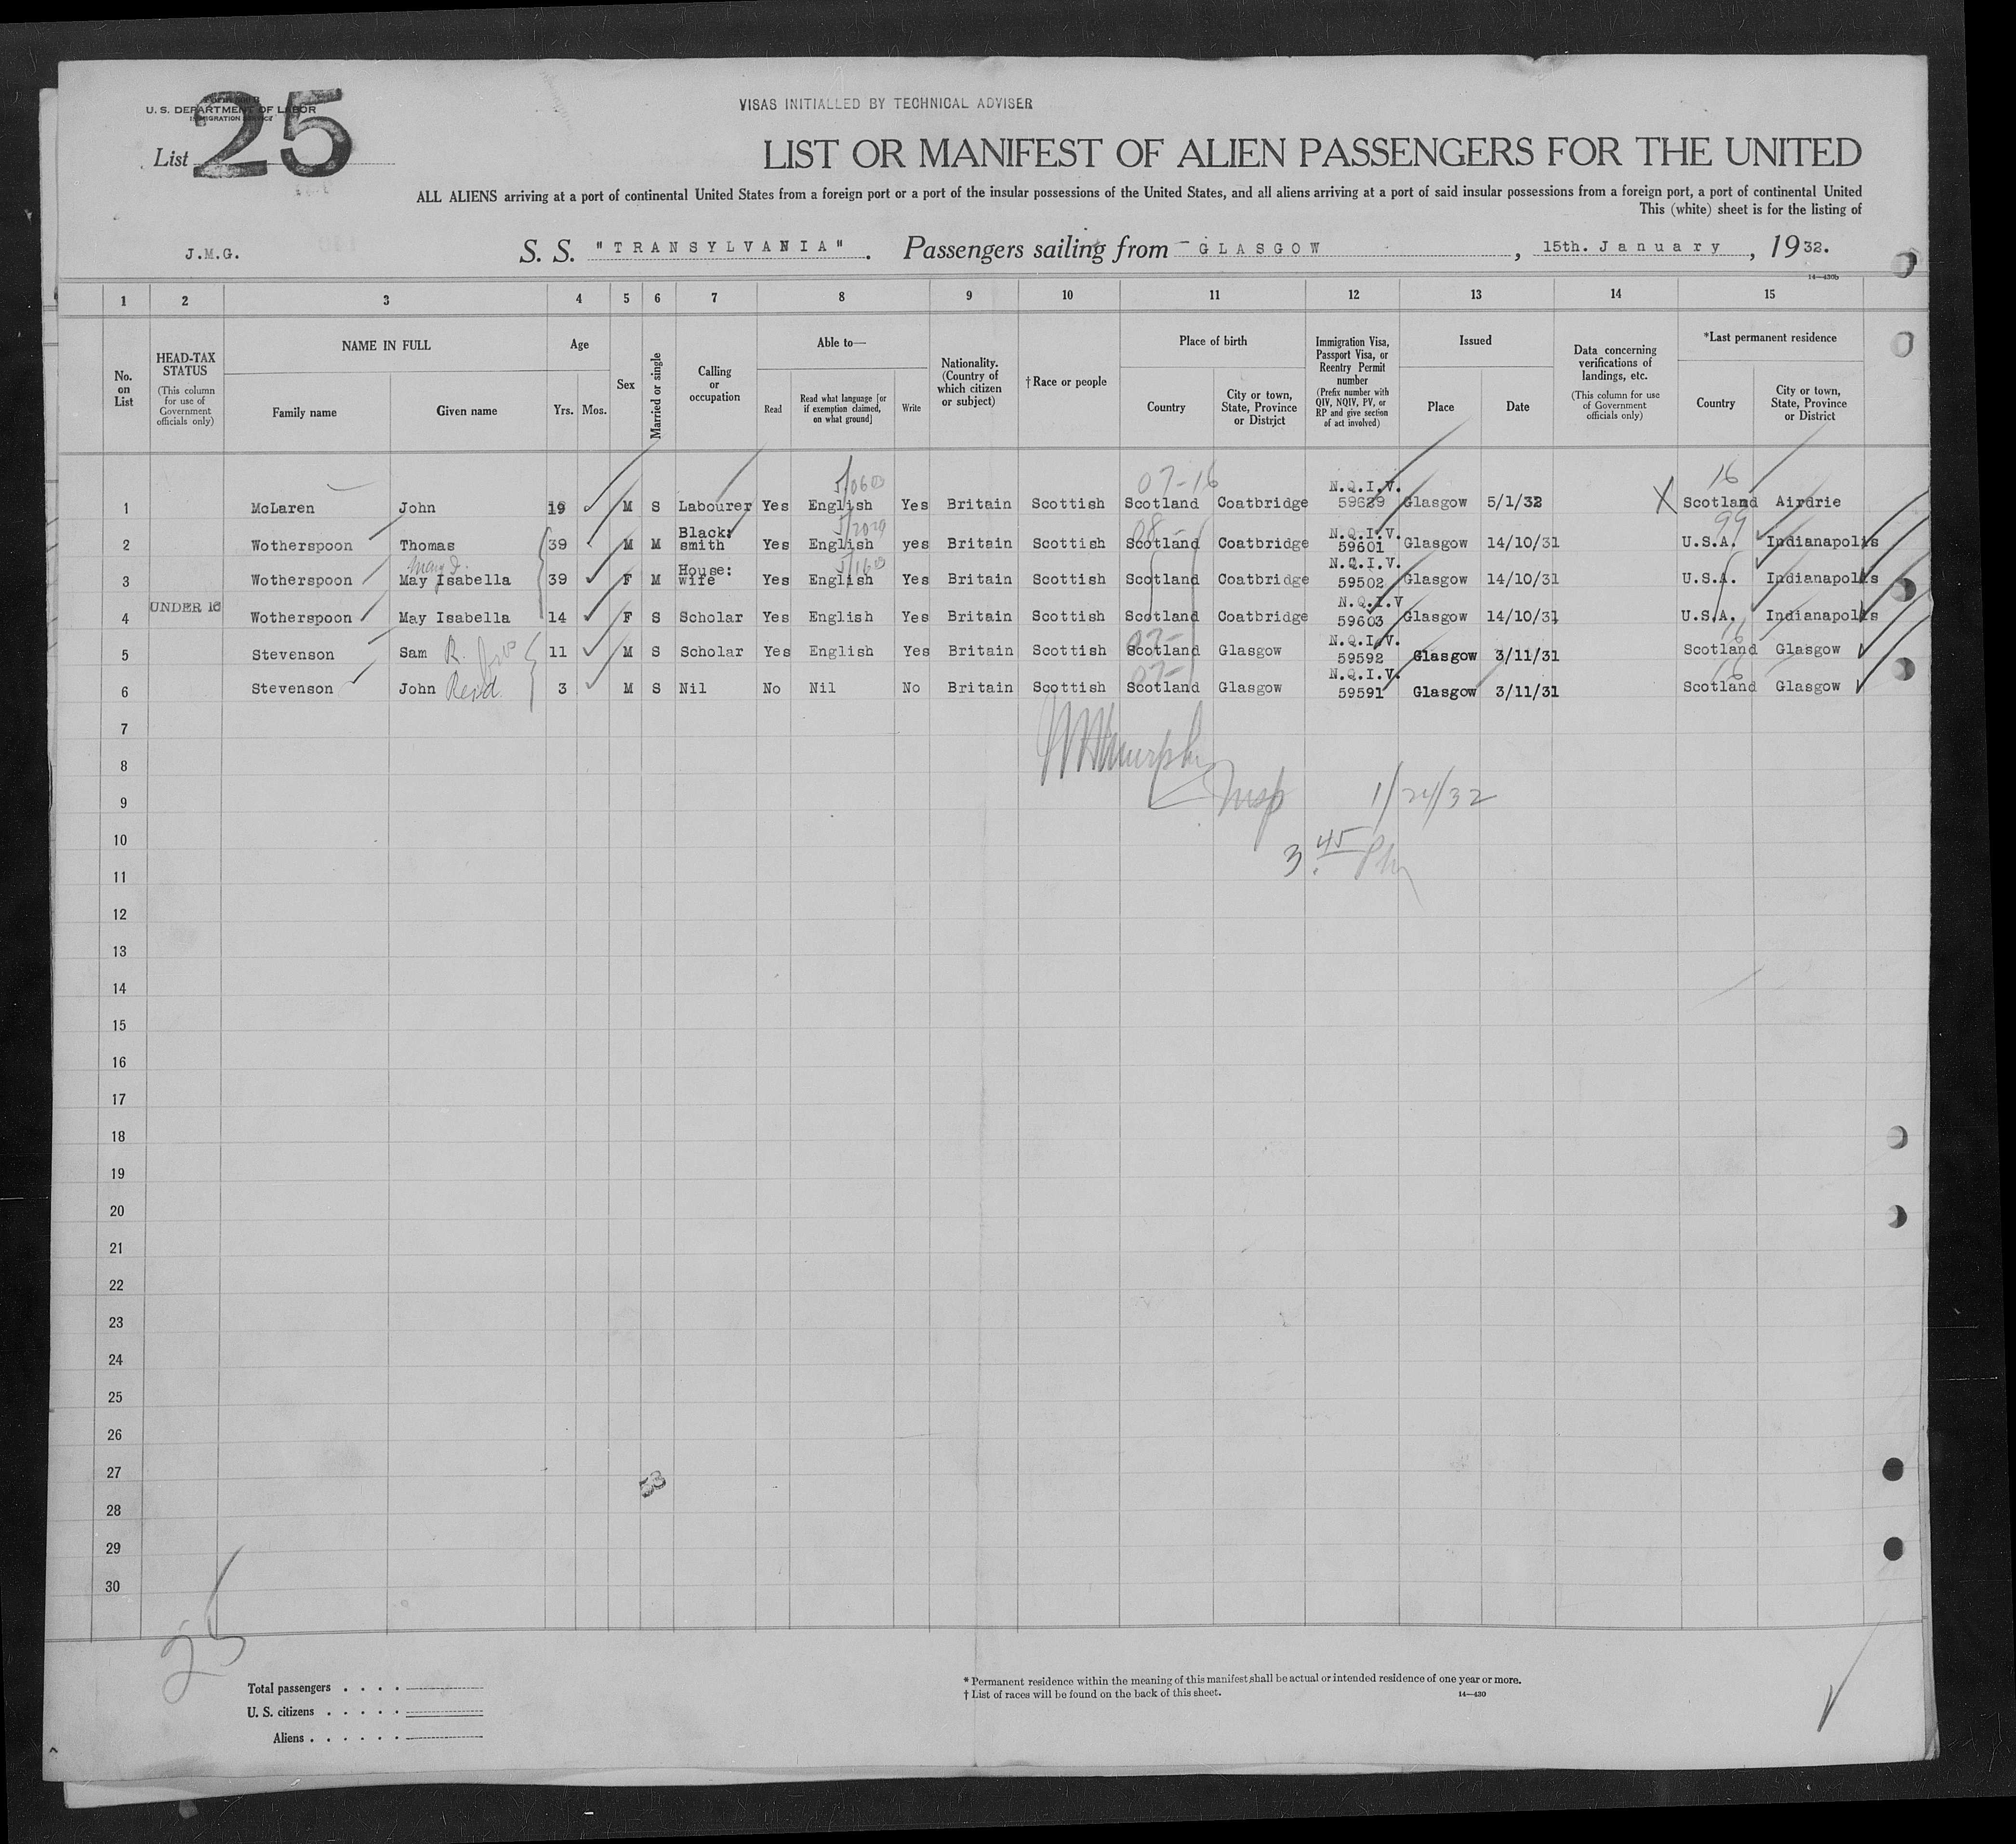 U. S. DEPARTMENT OF LABOR
IMMIGRATION SERVICE
List 25
VISAS INITIALLED BY TECHNICAL ADVISER
LIST OR MANIFEST OF ALIEN PASSENGERS FOR THE UNITED
ALL ALIENS arriving at a port of continental United States from a foreign port or a port of the insular possessions of the United States, and all aliens arriving at a port of said insular possessions from a foreign port, a port of continental United
This (white) sheet is for the listing of
J.M.G. S. S. "TRANSYLVANIA". Passengers sailing from GLASGOW, 15th. January, 1932.
14—430b
1 2 3 4 5 6 7 8 9 10 11 12 13 14 15
No. on List
HEAD-TAX STATUS (This column for use of Government officials only)
NAME IN FULL
Family name Given name
Age
Yrs. Mos.
Sex
Married or single
Calling or occupation
Able to—
Read Read what language [or if exemption claimed, on what ground] Write
Nationality. (Country of which citizen or subject)
† Race or people
Place of birth
Country City or town, State, Province or District
Immigration Visa, Passport Visa, or Reentry Permit number (Prefix number with QIV, NQIV, PV, or RP and give section of act involved)
Issued
Place Date
Data concerning verifications of landings, etc. (This column for use of Government officials only)
*Last permanent residence
Country City or town, State, Province or District
07-16 16
1 McLaren John 19 M S Labourer Yes English Yes Britain Scottish Scotland Coatbridge N.Q.I.V. 59629 Glasgow 5/1/32 X Scotland Airdrie
08- 99
2 Wotherspoon Thomas 39 M M Black: smith Yes English yes Britain Scottish Scotland Coatbridge N.Q.I.V. 59601 Glasgow 14/10/31 U.S.A. Indianapolis
Mary I.
3 Wotherspoon May Isabella 39 F M House: wife Yes English Yes Britain Scottish Scotland Coatbridge N.Q.I.V. 59502 Glasgow 14/10/31 U.S.A. Indianapolis
4 UNDER 16 Wotherspoon May Isabella 14 F S Scholar Yes English Yes Britain Scottish Scotland Coatbridge N.Q.I.V 59603 Glasgow 14/10/31 U.S.A. Indianapolis
07- 16
5 Stevenson Sam R. 11 M S Scholar Yes English Yes Britain Scottish Scotland Glasgow N.Q.I.V. 59592 Glasgow 3/11/31 Scotland Glasgow
07- 16
6 Stevenson John Reid 3 M S Nil No Nil No Britain Scottish Scotland Glasgow N.Q.I.V. 59591 Glasgow 3/11/31 Scotland Glasgow
7
Murphy
8
Insp 1/24/32
9
10
3.45 PM
11
12
13
14
15
16
17
18
19
20
21
22
23
24
25
26
27
53
28
29
30
25
Total passengers . . . .
U. S. citizens . . . . .
Aliens . . . . . .
* Permanent residence within the meaning of this manifest shall be actual or intended residence of one year or more.
† List of races will be found on the back of this sheet.
14—430